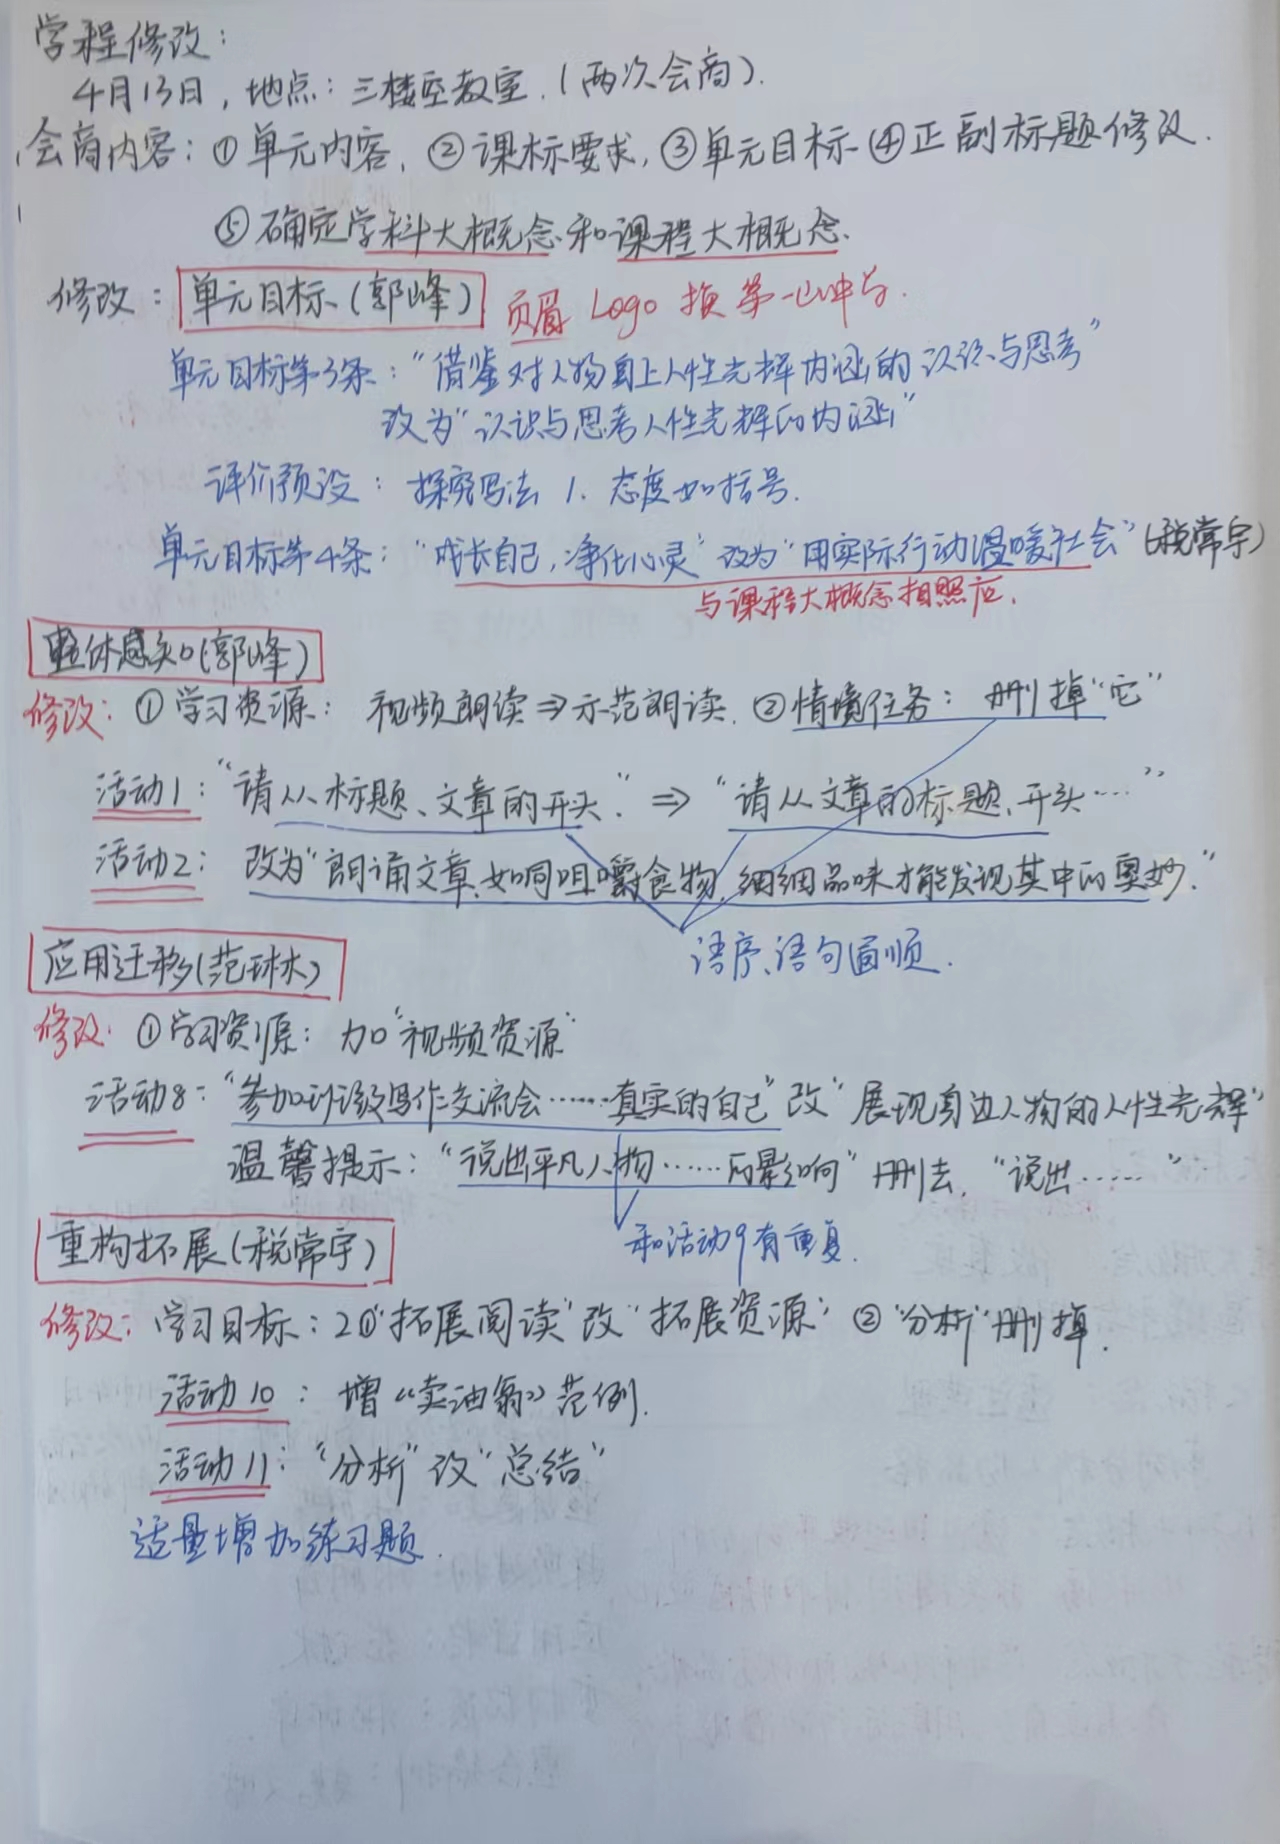 学程修改：
4月13日，地点：三楼空教室.（两次会商）.
会商内容：①单元内容，②课标要求，③单元目标④正副标题修改.
⑤确定学科大概念和课程大概念.
修改：单元目标（郭峰） 页眉 Logo 换第一山中与.
单元目标第3条：“借鉴对人物身上人性光辉内涵的认识与思考”
改为“认识与思考人性光辉的内涵”
评价预设：探究写法 1. 态度加括号.
单元目标第4条：“成长自己，净化心灵”改为“用实际行动温暖社会”（税常宇）
与课程大概念相照应.
整体感知（郭峰）
修改：①学习资源：视频朗读⇒示范朗读.②情境任务：删掉“它”
活动1：“请从标题、文章的开头.”⇒“请从文章的标题、开头……”
活动2：改为“朗诵文章，如同咀嚼食物，细细品味才能发现其中的奥妙.”
语序、语句通顺.
应用迁移（范琳）
修改：①学习资源：加“视频资源”
活动8：“参加班级写作交流会……真实的自己”改“展现身边人物的人性光辉”
温馨提示：“说出平凡人物……的影响”删去，“说出……”
和活动9有重复.
重构拓展（税常宇）
修改：学习目标：2①“拓展阅读”改“拓展资源”②“分析”删掉.
活动10：增《卖油翁》范例.
活动11：“分析”改“总结”
适量增加练习题.